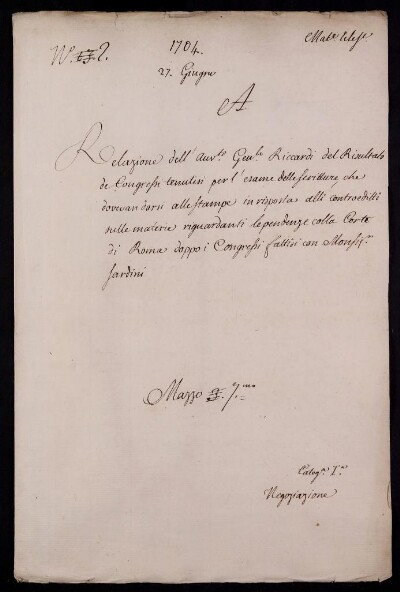 1704.
27. Giugno
N.° 2.
A
Relazione dell' Avv.to Gen.le Riccardi del Risultato
de Congressi tenutisi per l'esame delle scritture, che
dovevan darsi alle stampe in risposta alli controeditti
sulle materie riguardanti le pendenze colla Corte
di Roma doppo i Congressi fattisi con Monsig.r
Sardini
Mazzo 7.mo
Categ.a I.a
Negoziazione